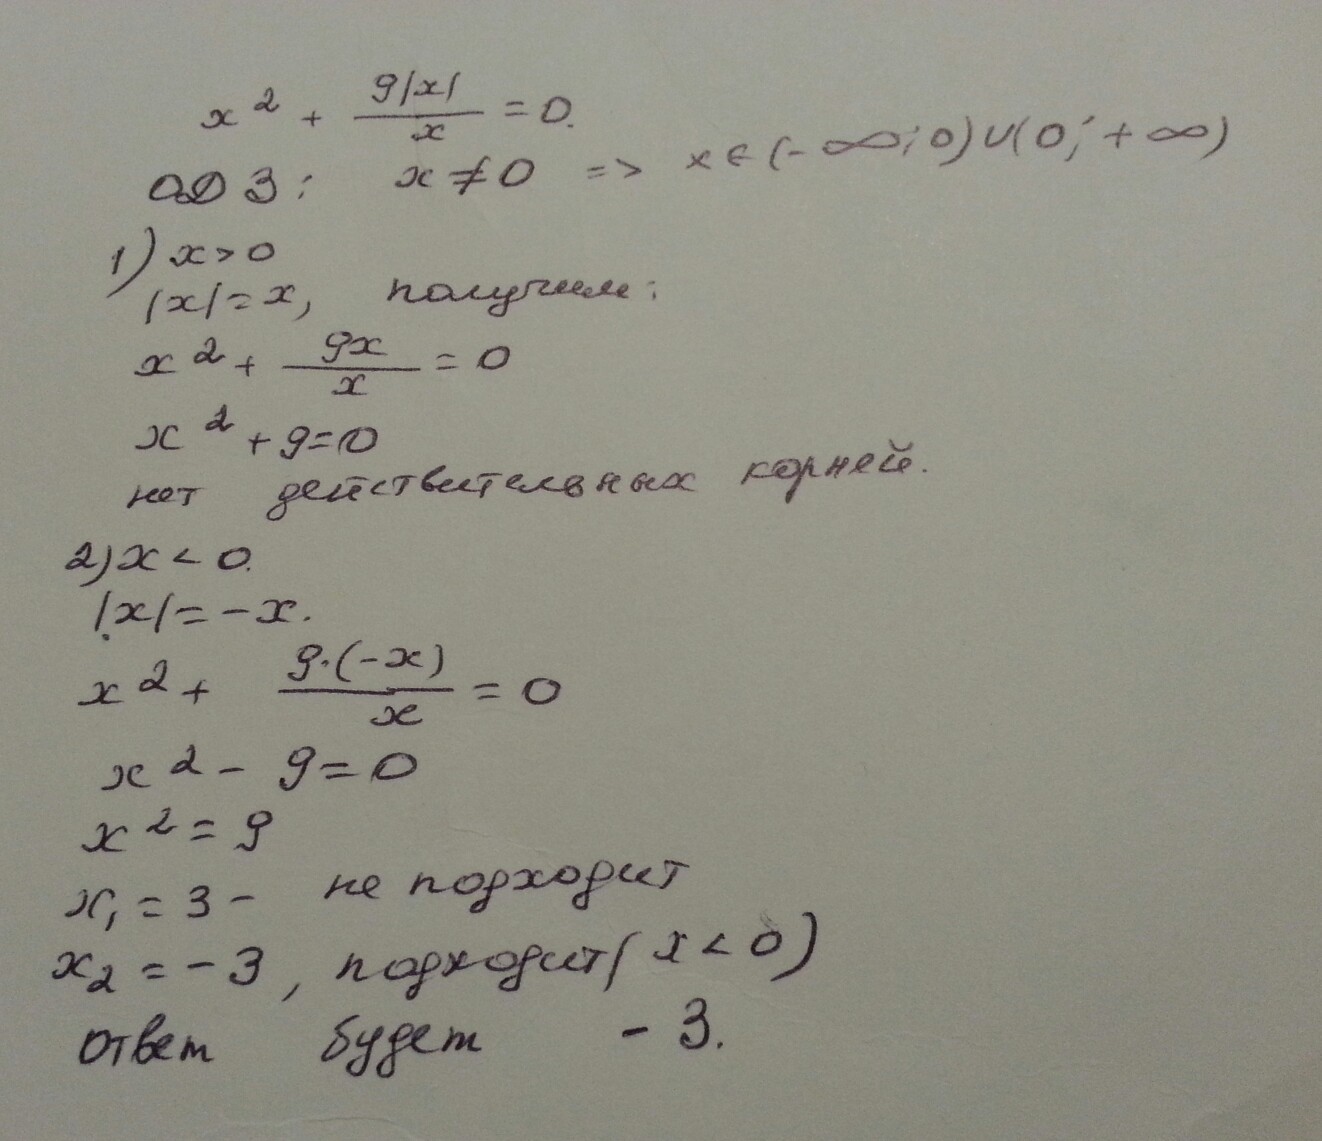 x² + 9|x|/x = 0.
ОДЗ: x ≠ 0 => x ∈ (-∞; 0) ∪ (0; +∞)
1) x > 0
|x| = x, получим:
x² + 9x/x = 0
x² + 9 = 0
нет действительных корней.
2) x < 0.
|x| = -x.
x² + 9·(-x)/x = 0
x² - 9 = 0
x² = 9
x₁ = 3 - не подходит
x₂ = -3, подходит (x < 0)
ответ будет -3.